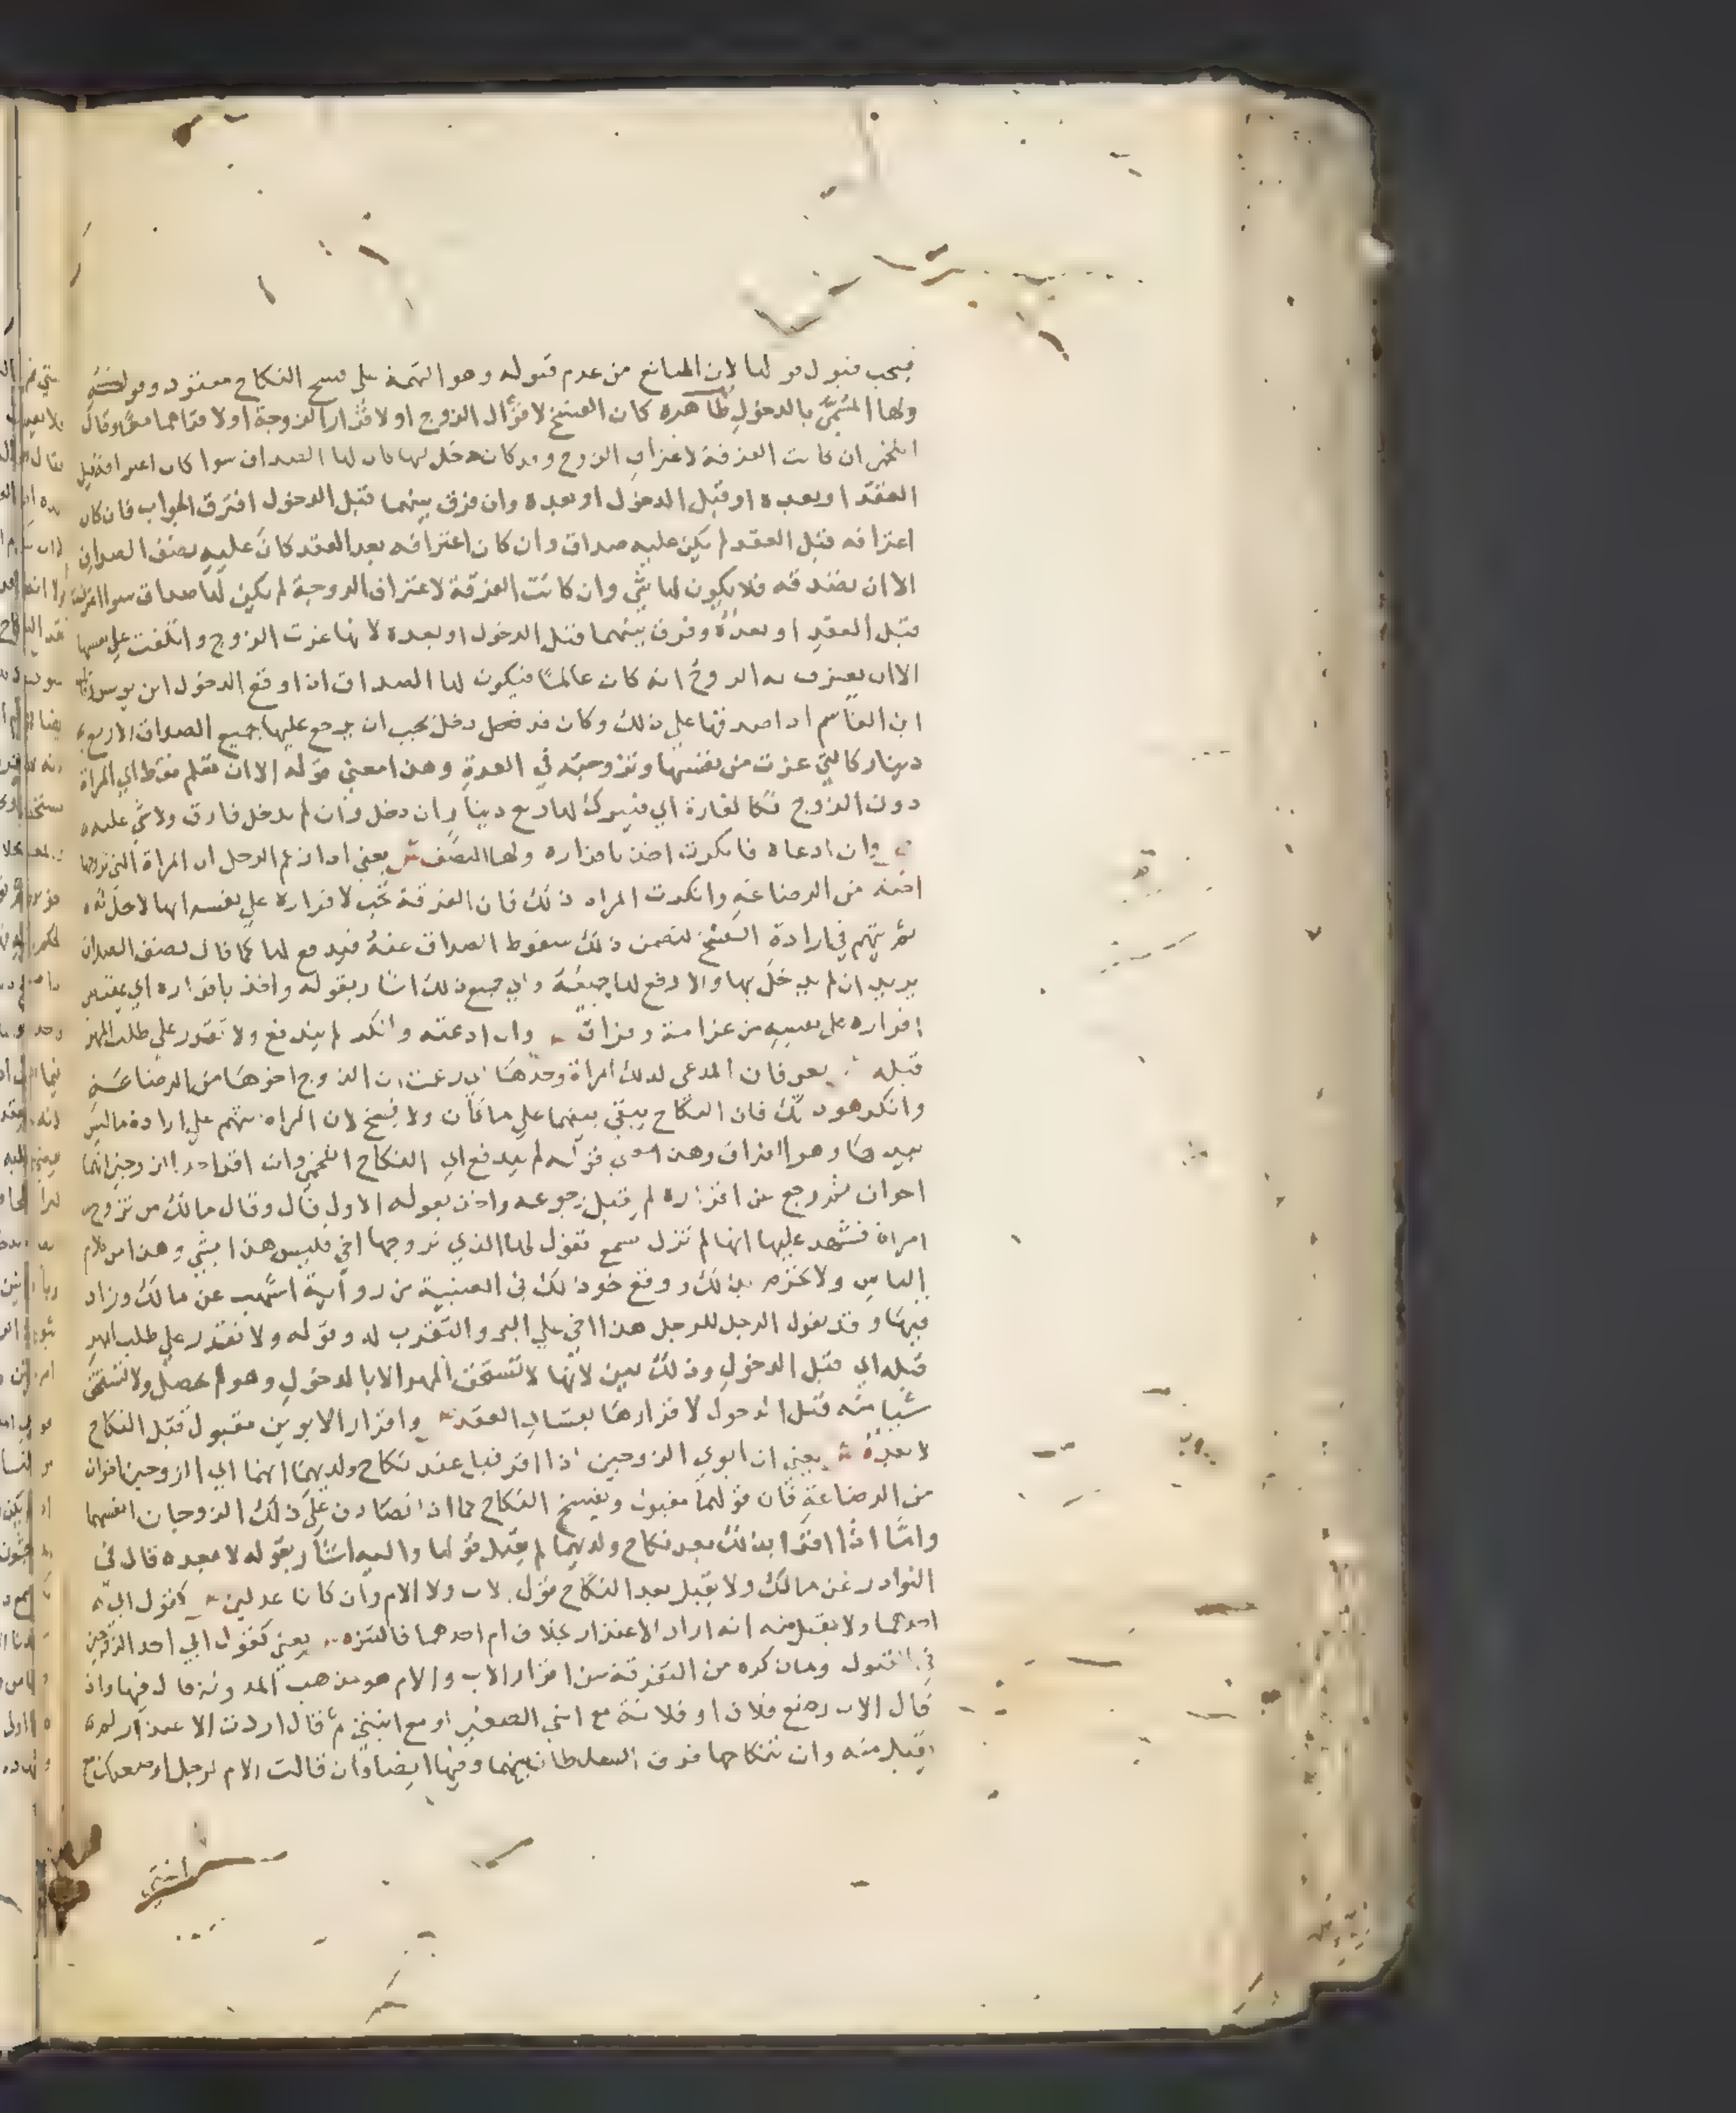 فيجب قبول قولها لان المانع من عدم قبوله وهو التهمة على فسخ النكاح مفقود وقوله
ولها المسمى بالدخول ظاهره كان الفسخ لاقرار الزوج او لاقرار الزوجة او لاقرارهما معا وقال
اللخمي ان كانت الفرقة لاعتراف الزوج وقد كان دخل بها كان لها الصداق سوا كان اعترافه قبل
العقد او بعده او قبل الدخول او بعده وان فرق بينهما قبل الدخول افترق الجواب فان كان
اعترافه قبل العقد لم يكن عليه صداق وان كان اعترافه بعد العقد كان عليه نصف الصداق
الا ان تصدقه فلا يكون لها شي وان كانت الفرقة لاعتراف الزوجة لم يكن لها صداق سوا اعترفت
قبل العقد او بعده وفرق بينهما قبل الدخول او بعده لانها غرت الزوج واتلفت على نفسها
الا ان يعترف به الزوج انه كان عالما فيكون لها الصداق اذا وقع الدخول ابن يونس
ابن القاسم اذا صدقها على ذلك وكان قد دخل يجب ان يرجع عليها بجميع الصداق الا ربع
دينار كالتي غرت من نفسها وتزوجته في العدة وهذا معنى قوله الا ان تعلم فقط اي المراة
دون الزوج فكالغارة اي فيترك لها ربع دينار ان دخل وان لم يدخل فارق ولا شي عليه
وان ادعاه فانكرت اخذ باقراره ولها النصف ش يعني اذا زعم الرجل ان المراة التي تزوجها
اخته من الرضاعة وانكرت المراه ذلك فان الفرقة تجب لاقراره على نفسه انها لا تحل له
ثم يتهم في ارادة الفسخ لتضمن ذلك سقوط الصداق عنه فيدفع لها كما قال نصف الصداق
يريد ان لم يدخل بها والا دفع لها جميعه والى جميع ذلك اشار بقوله واخذ باقراره اي بمقتضى
اقراره على نفسه من غرامة وفراق وان ادعته وانكر لم يندفع ولا تقدر على طلب المهر
قبله يعني فان المدعي لذلك امراة وحدها اي زعمت ان الزوج اخوها من الرضاعة
وانكر هو ذلك فان النكاح يبقى بينهما على ما كان ولا يفسخ لان المراة تتهم على ارادة ما ليس
بيدها وهو الفراق وهذا معنى قوله لم يندفع اي النكاح اللخمي وان اقر احد الزوجين انهما
اخوان ثم رجع عن اقراره لم يقبل رجوعه واخذ بقوله الاول قال وقال مالك من تزوج
امراة فشهد عليها انها لم تزل تسمع تقول لهذا الذي تزوجها اخي فليس هذا بشي وهذا من كلام
الناس ولا تحرم بذلك ووقع نحو ذلك في العتبية من رواية اشهب عن مالك وزاد
فيها وقد يقول الرجل للرجل هذا اخي على البر والتقرب له وقوله ولا تقدر على طلب المهر
قبله اي قبل الدخول وذلك بين لانها لا تستحق المهر الا بالدخول وهو لم يحصل ولا تستحق
شيا منه قبل الدخول لاقرارها بفساد العقد واقرار الابوين مقبول قبل النكاح
لا بعده ش يعني ان ابوي الزوجين اذا اقرا قبل عقد نكاح ولديهما انهما اي الزوجين اخوان
من الرضاعة فان قولهما مقبول ويفسخ النكاح كما اذا تصادق على ذلك الزوجان انفسهما
واما اذا اقرا بذلك بعد نكاح ولديهما لم يقبل قولهما واليه اشار بقوله لا بعده قال في
النوادر عن مالك ولا يقبل بعد النكاح قول الاب ولا الام وان كانا عدلين كقول ابي
احدهما ولا يقبل منه انه اراد الاعتذار بخلاف ام احدهما فالتنزه يعني كقول ابي احد الزوجين
في القبول وما ذكره من التفرقة بين اقرار الاب والام هو مذهب المدونة قال فيها واذا
قال الاب رضع فلان او فلانة مع ابني الصغير او مع ابنتي ثم قال اردت الاعتذار لم
يقبل منه وان تناكحا فرق السلطان بينهما وفيها ايضا وان قالت الام لرجل ارضعتك مع